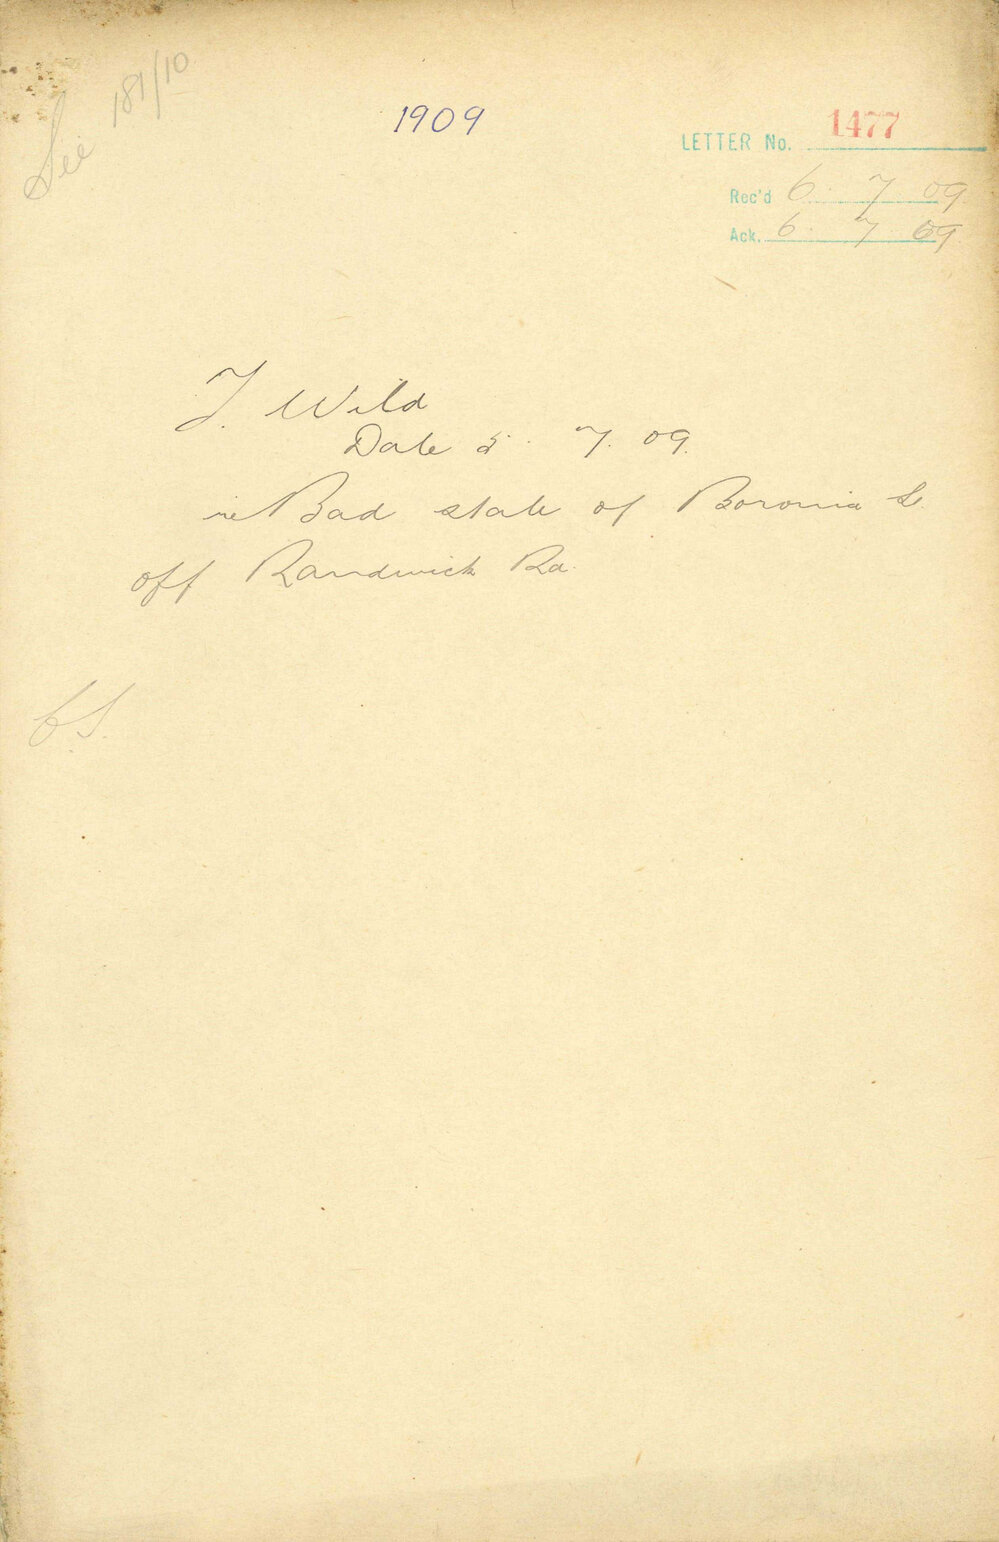 See 181/10
1909
LETTER No. 1477
Rec'd 6. 7 09
Ack. 6. 7 09
J. Wild
Date 5. 7. 09.
re Bad state of Boronia St.
off Randwick Rd.